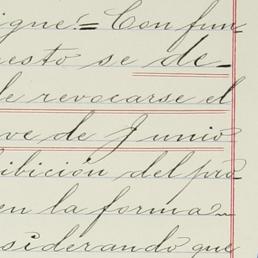 igne:= Con fun-
esto se de-
le revocarse el
ve de Junio
ibición del pro-
en la forma
siderando que